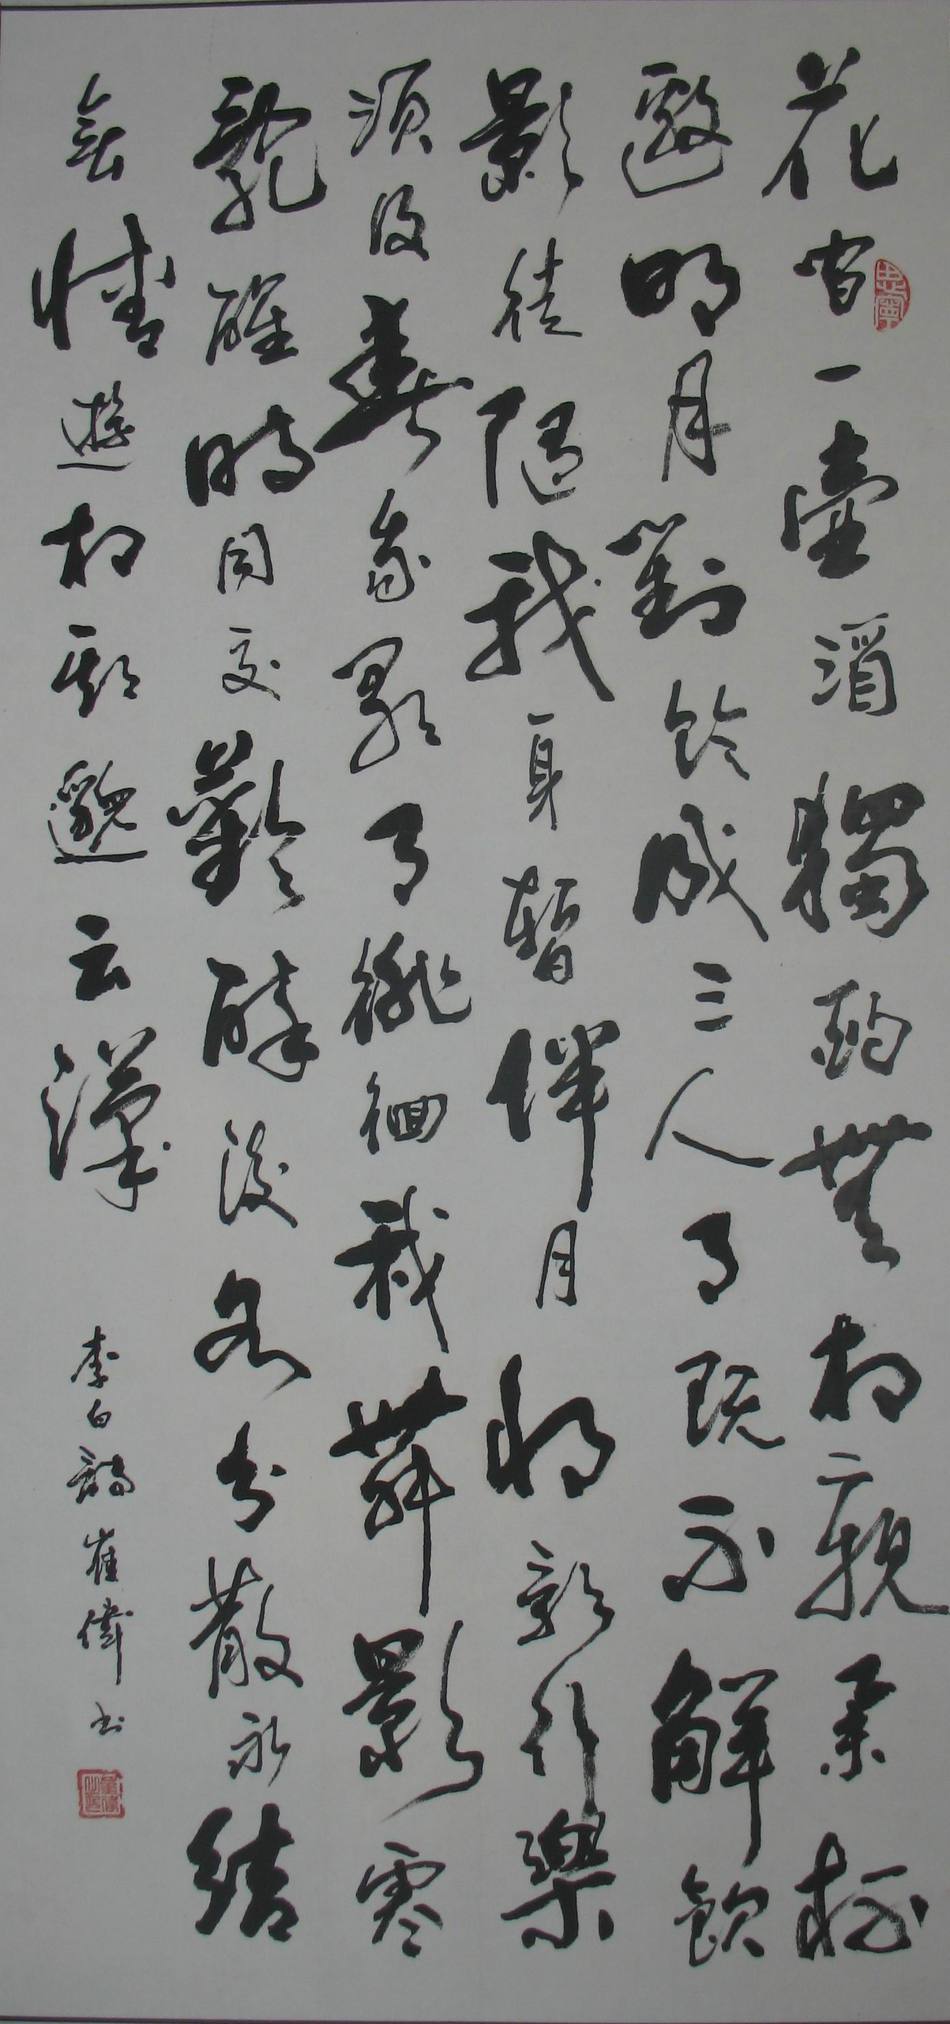 花間一壺酒獨酌無相親舉杯
邀明月對飲成三人月既不解飲
影徒隨我身暫伴月將影行樂
須及春我歌月徘徊我舞影零
亂醒時同交歡醉後各分散永結
無情遊相期邈云漢
李白詩崔偉书
思寧